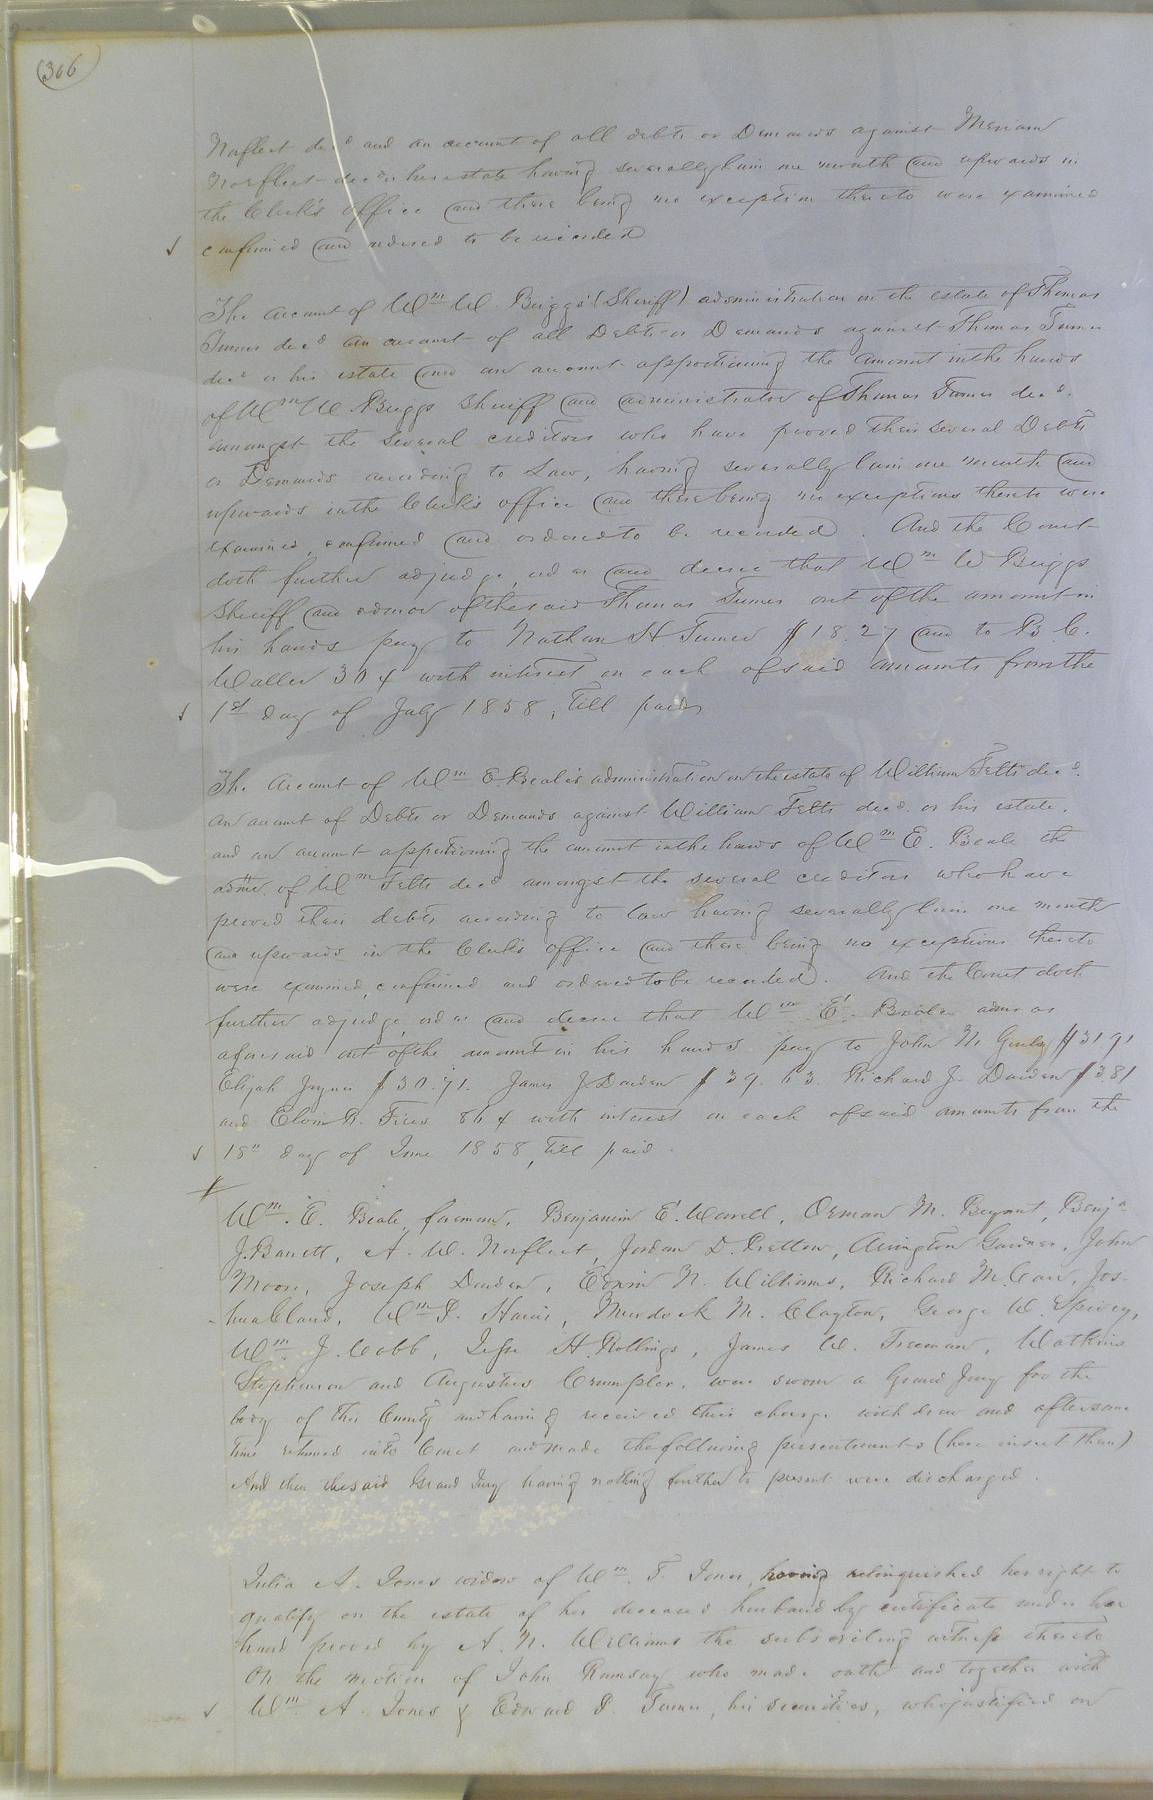 (306)
Norfleet decd and an account of all debts or Demands against Meriam
Norfleet decd or her estate having severally lain one month and upwards in
the Clerk's office and there being no exception thereto were examined
confirmed and ordered to be recorded
The account of Wm W. Briggs' (Sheriff) administration on the estate of Thomas
Turner decd an account of all Debts or Demands against Thomas Turner
decd or his estate and an account apportioning the amount in the hands
of Wm W Briggs Sheriff and administrator of Thomas Turner decd.
amongst the several creditors who have proved their several Debts
or Demands according to Law, having severally lain one month and
upwards in the Clerk's office and there being no exceptions thereto were
examined, confirmed and ordered to be recorded. And the Court
doth further adjudge, order and decree that Wm W Briggs
Sheriff and admor of the said Thomas Turner out of the amount in
his hands pay to Nathan H Turner $18.27 and to B. C.
Waller 304 with interest on each of said amounts from the
1st day of July 1858, till paid
The account of Wm E. Beale's administration on the estate of William Felts decd.
an account of Debts or Demands against William Felts decd. or his estate.
and an account apportioning the amount in the hands of Wm E. Beale the
admr of Wm Felts decd amongst the several creditors who have
proved their debts according to law having severally lain one month
and upwards in the Clerk's office and there being no exceptions thereto
were examined, confirmed and ordered to be recorded. And the Court doth
further adjudge, order and decree that Wm E. Beale admr as
aforesaid out of the amount in his hands pay to John N. $3191
Elijah Joyner $30.71. James J Darden $39.63. Richard J. Darden $3.81
and 864 with interest on each of said amounts from the
18th day of June 1858, till paid.
Wm. E. Beale, foreman, Benjamin E. Worrell, Orman M. Bryant, Benja
J. Barrett, A. W. Norfleet, Jordan D. Pretlow, Arrington Gardner, John
Moore, Joseph Darden, Edwin N. Williams, Richard M. Carr, Jos-
-hua Bland, Wm P. Harris, Murdock M. Clayton, George W. Spivey,
Wm. J. Cobb, Jesse H. Rollings, James W. Freeman, Watkins
Stephenson and Augustus Crumpler. were sworn a Grand Jury for the
body of this County and having received their charge withdrew and after some
time returned into Court and made the following presentments (here insert them)
And then the said Grand Jury having nothing further to present were discharged.
Julia A. Jones widow of Wm. T. Jones, having relinquished her right to
qualify on the estate of her deceased husband by certificate under her
hand proved by A. N. Williams the subscribing witness thereto
On the motion of John Ramsay who made oath and together with
Wm. A. Jones & Edward P. Turner, his securities, who justified on